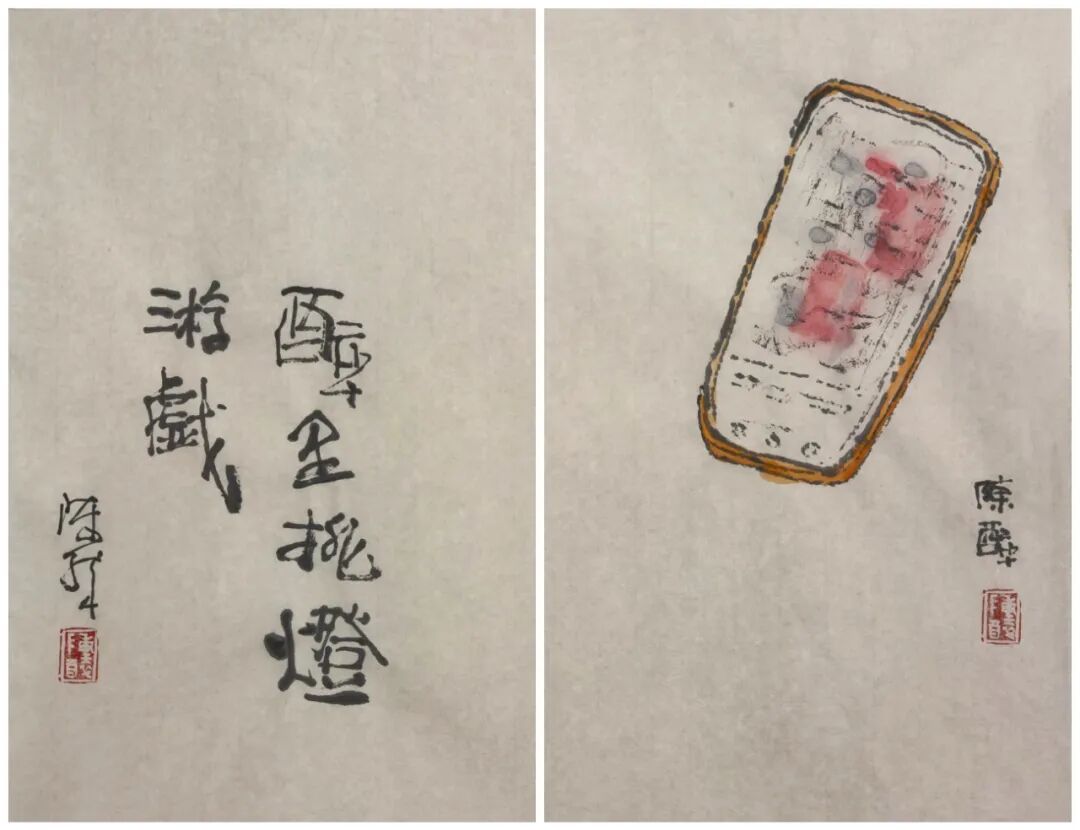 醉里挑燈
游戲
陳醉
陳醉